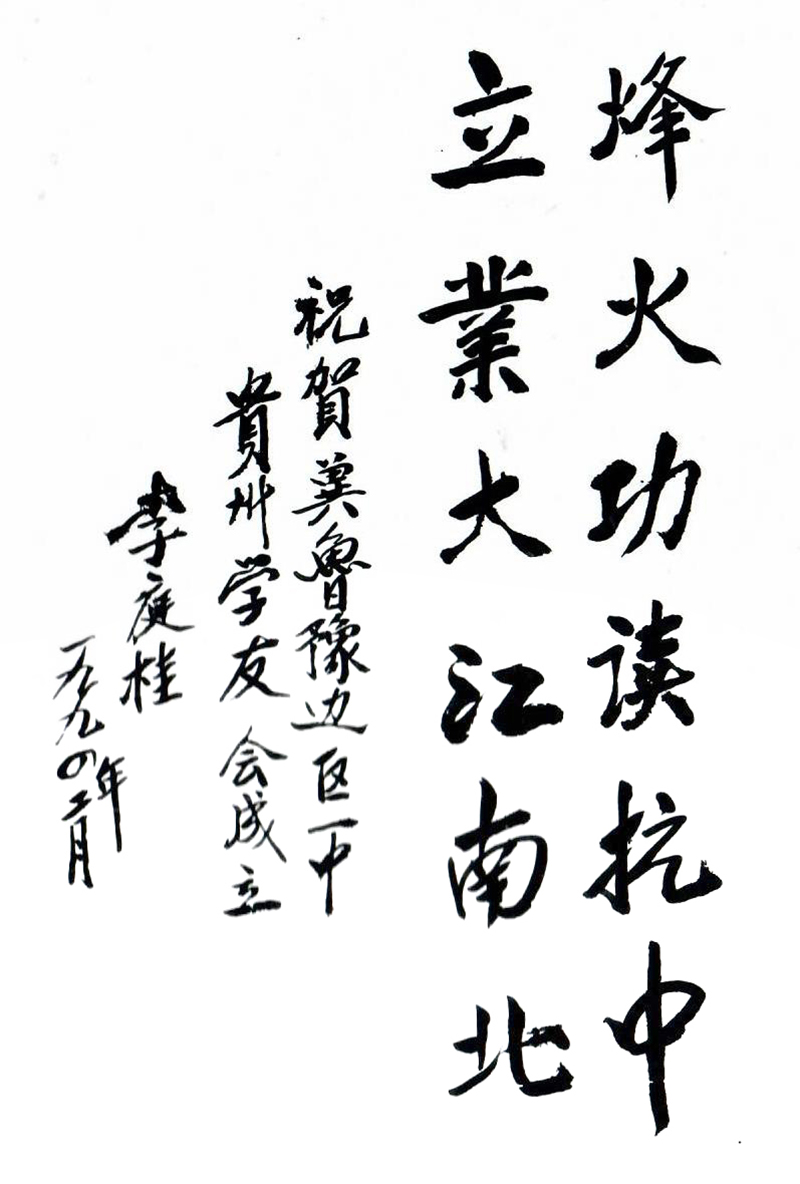 烽火功读抗中
立業大江南北
祝賀冀魯豫边区一中
貴州学友会成立
李庭桂
一九九四年二月